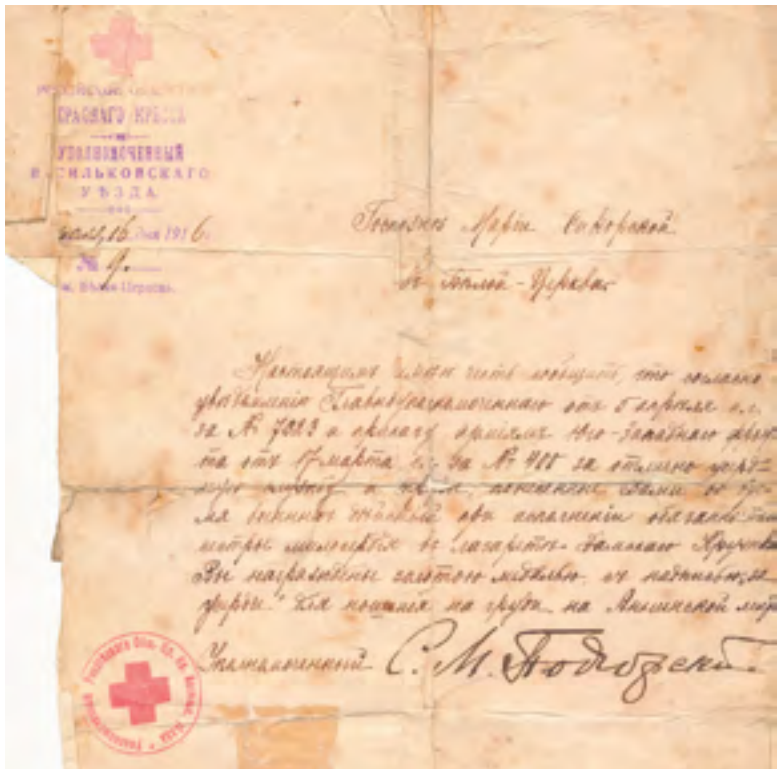 РОССІЙСКОЕ ОБЩЕСТВО
КРАСНАГО КРЕСТА
УПОЛНОМОЧЕННЫЙ
ВАСИЛЬКОВСКАГО
УѢЗДА
16 дня 1916
№ 9.
м. Бѣлая-Церковь.
Госпожѣ Маріи Сикорской
въ Бѣлой-Церкви
Настоящимъ имѣю честь сообщить, что согласно
увѣдомленія Главноуполномоченнаго отъ 5 апрѣля с.г.
за № 7823 и приказу арміямъ Юго-Западнаго фрон-
та отъ 17 марта с.г. за № 400 за отлично усерд-
ную службу и труды, понесенные Вами во вре-
мя военныхъ дѣйствій при исполненіи обязанностей
сестры милосердія въ лазаретѣ Дамскаго Кружка
Вы награждены золотою медалью съ надписью „за
усердіе" для ношенія на груди на Аннинской
Уполномоченный С. М. Подгорскій